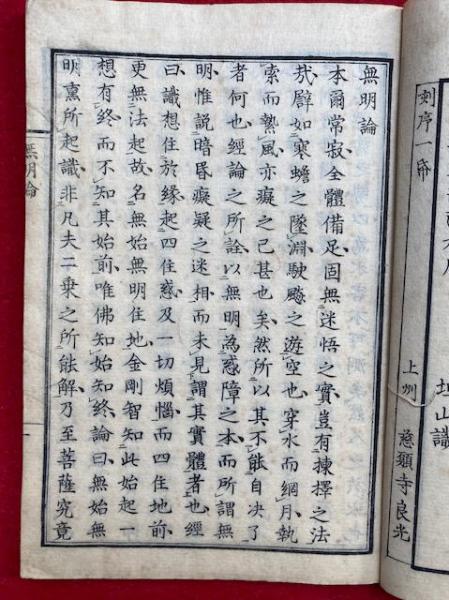 坦山識
上州 慈願寺良光
刻序一帋
無明論
本爾常寂全體備足固無迷悟之實豈有揀擇之法
哉譬如寒蟾之墜淵駛飈之遊空也穿水而網月執
索而縶風亦癡之已甚也矣然所以其不能自決了
者何也經論之所詮以無明為惑障之本而所謂無
明惟説暗昏癡疑之迷相而未見謂其實體者也經
曰識想住於緣起四住惑及一切煩惱而四住地前
更無法起故名無始無明住地金剛智知此始起一
想有終而不知其始前唯佛知始知終論曰無始無
明熏所起識非凡夫二乘之所能解乃至菩薩究竟
無明論 一